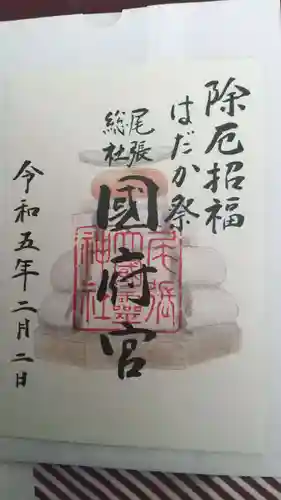 除厄招福
はだか祭
尾張
総社
國府宮
令和五年二月二日
尾張
大國霊
神社